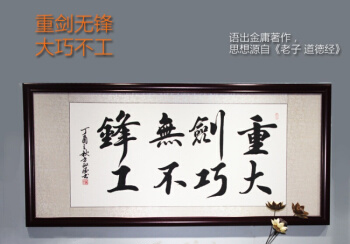 重剑无锋
大巧不工
语出金庸著作，
思想源自《老子 道德经》
重劍無鋒
大巧不工
丁酉之秋